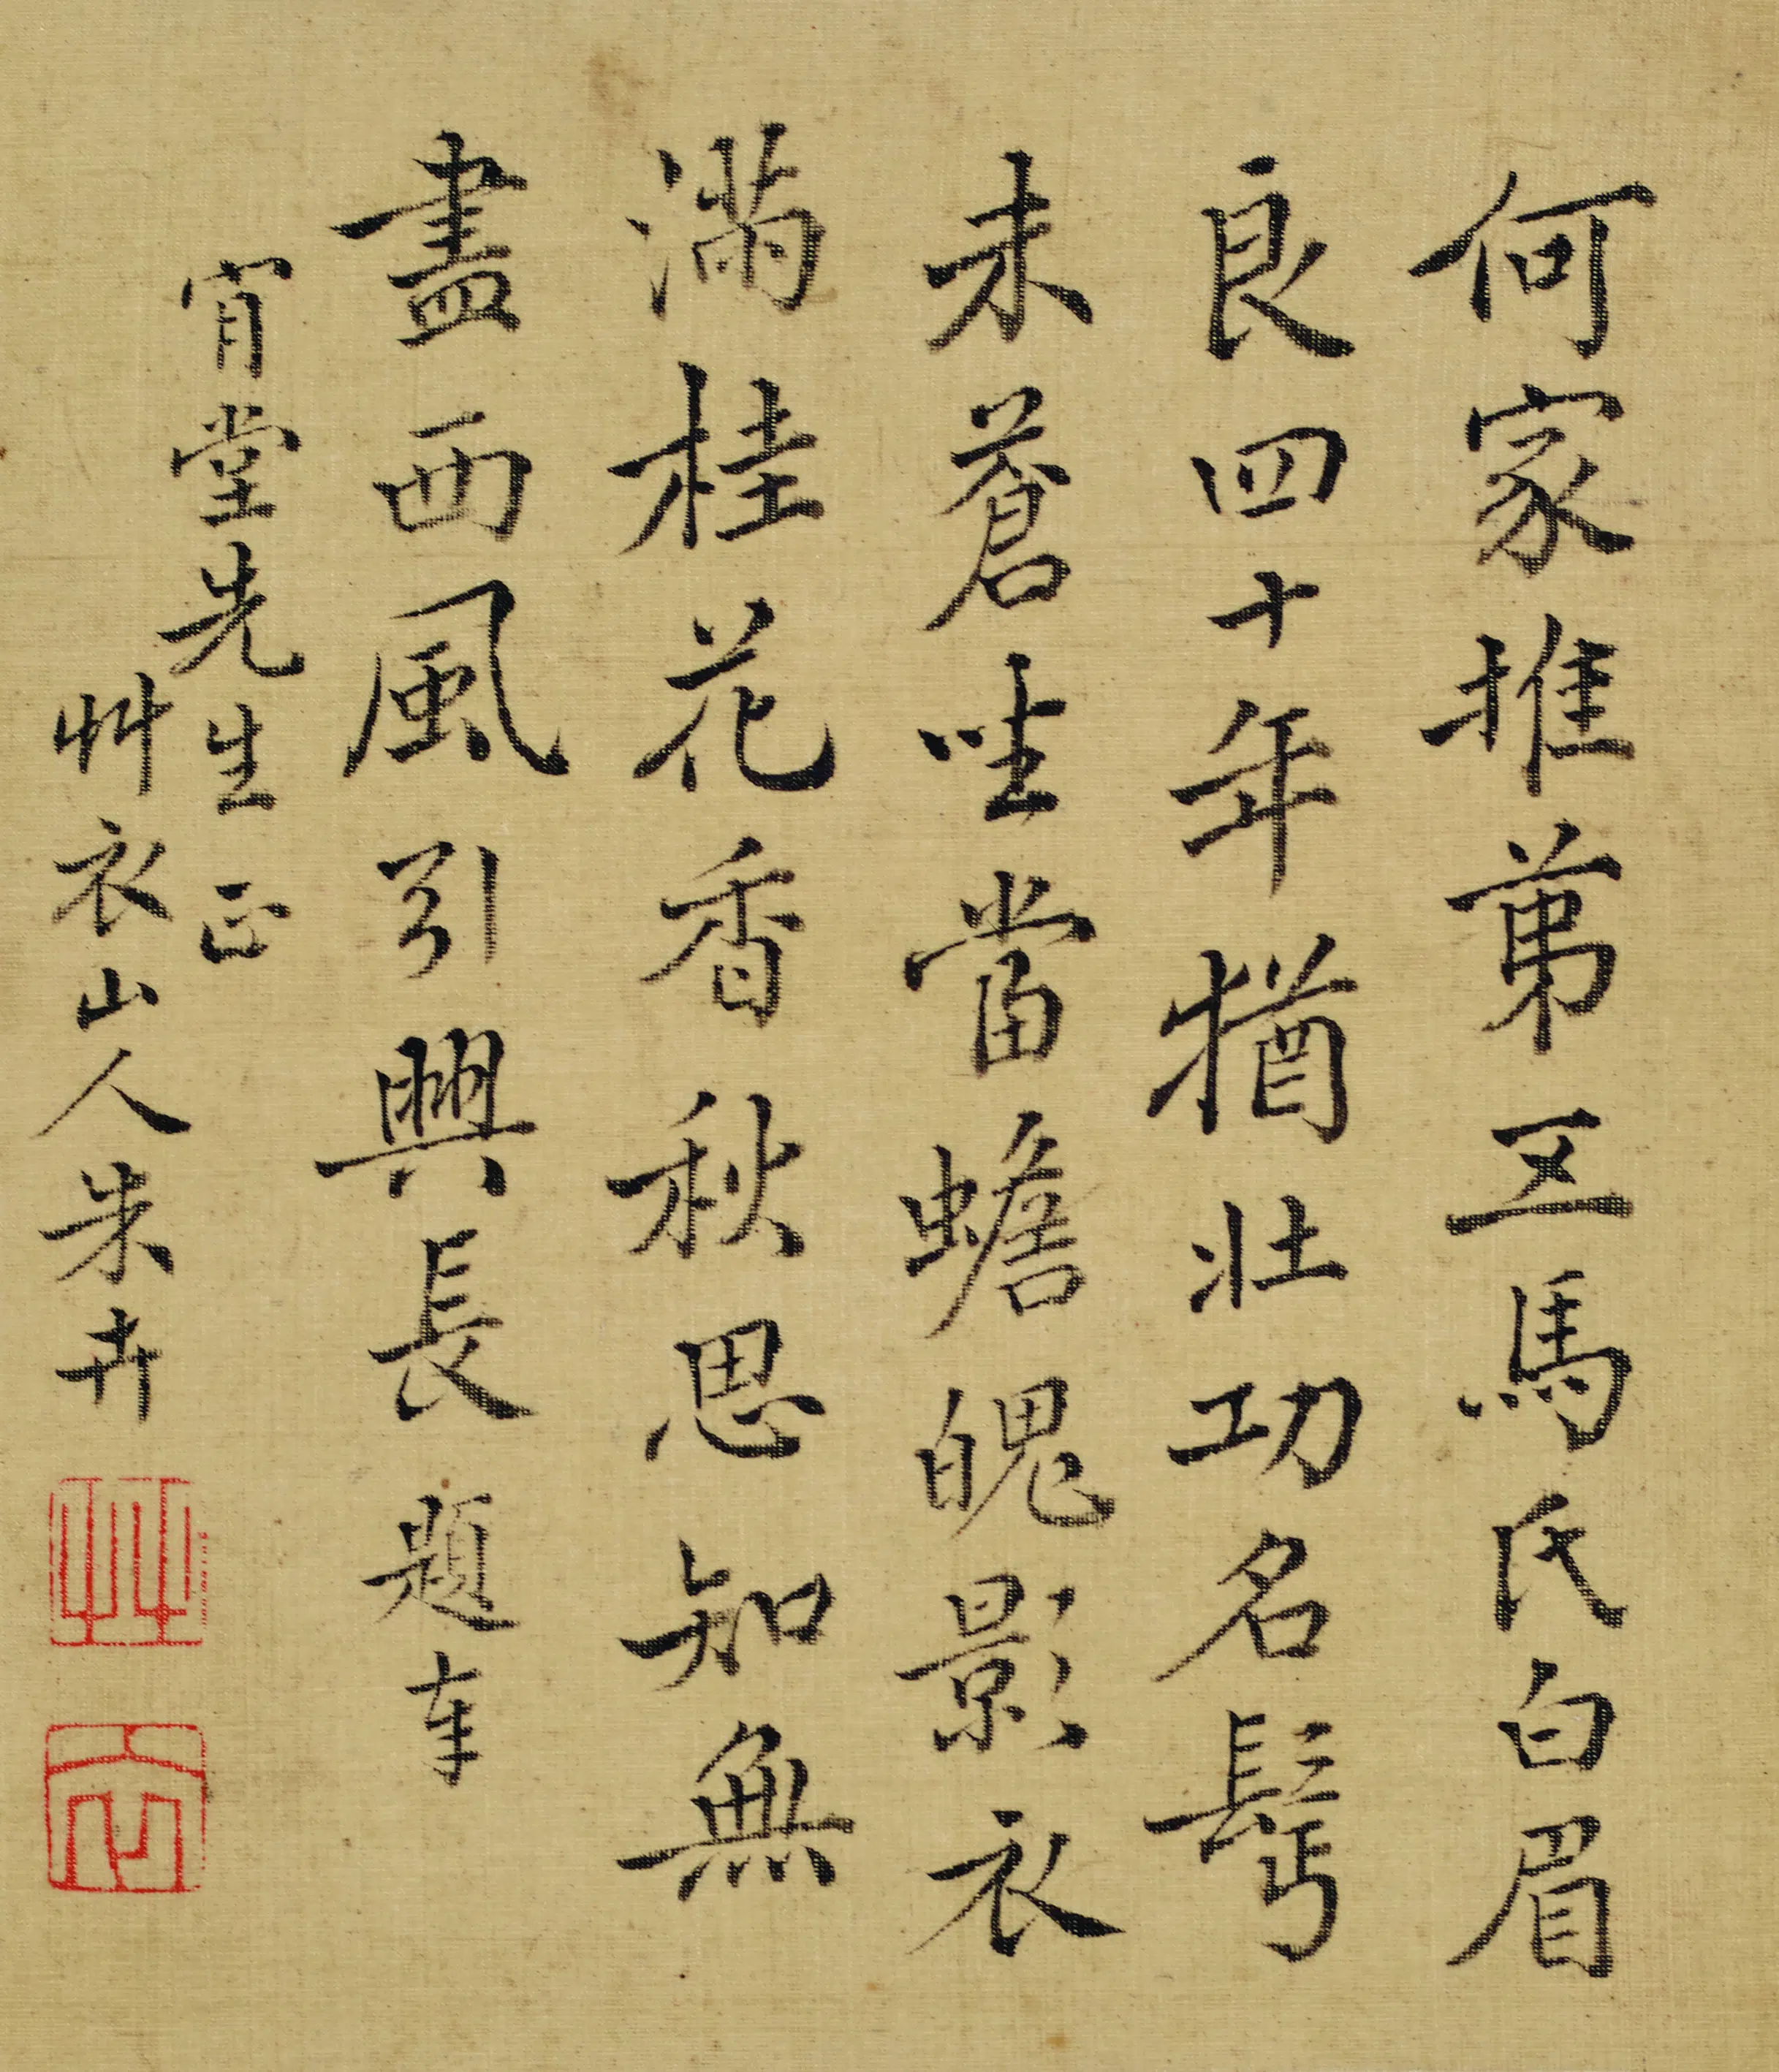 何家推第五馬氏白眉
良四十年猶壯功名鬂
未蒼坐當蟾魄影衣
滿桂花香秋思知無
盡西風引興長 題奉
宵堂先生正
艸衣山人朱卉